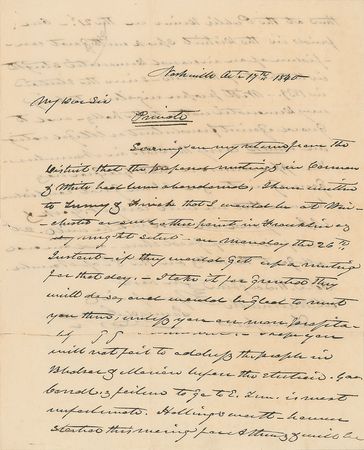 Nashville Oct. 17th 1840
My Dear Sir
Private
Learning on my return from the
District that the proposed meetings in Cannon
& White had been abandoned, I have written
to & that I would be at Win-
chester or such other point in Franklin as
might select - on Monday the 26th
Instant - if they would get up a meeting
for that day. - I take it for granted they
will do so, and would be glad to meet
you there, unless you can more profita-
bly I hope you
will not fail to address the people in
Bledsoe & Marion before the election. Gov
failure to go to E. Ten. is most
unfortunate. Hollingsworth - however
started this morning for Athens & will be